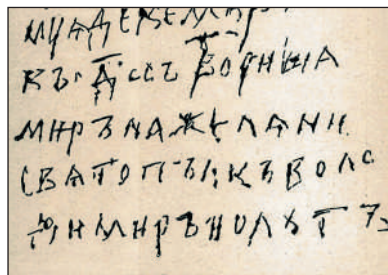 МЦАДЕКЕМБРѦ
ВЪ·Д·ЄСЪТВОРИША
МИРЪНАЖЕЛАНИ
СВАТОПЪЛКЪВОЛО
ДИМИРЪИОЛЬГ